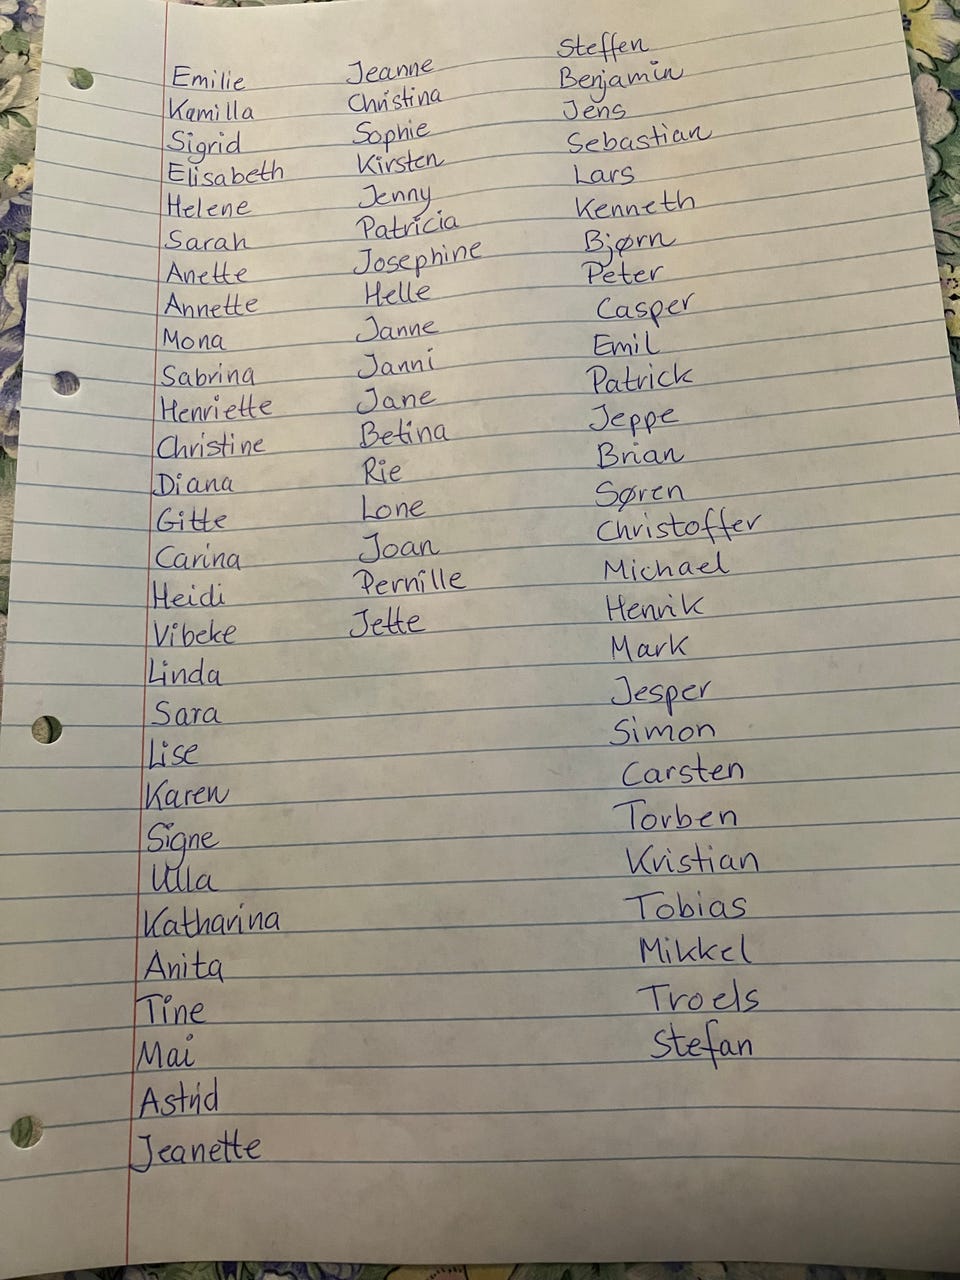 Emilie
Kamilla
Sigrid
Elisabeth
Helene
Sarah
Anette
Annette
Mona
Sabrina
Henriette
Christine
Diana
Gitte
Carina
Heidi
Vibeke
Linda
Sara
Lise
Karen
Signe
Ulla
Katharina
Anita
Tine
Mai
Astrid
Jeanette
Jeanne
Christina
Sophie
Kirsten
Jenny
Patricia
Josephine
Helle
Janne
Janni
Jane
Betina
Rie
Lone
Joan
Pernille
Jette
Steffen
Benjamin
Jens
Sebastian
Lars
Kenneth
Bjørn
Peter
Casper
Emil
Patrick
Jeppe
Brian
Søren
Christoffer
Michael
Henrik
Mark
Jesper
Simon
Carsten
Torben
Kristian
Tobias
Mikkel
Troels
Stefan